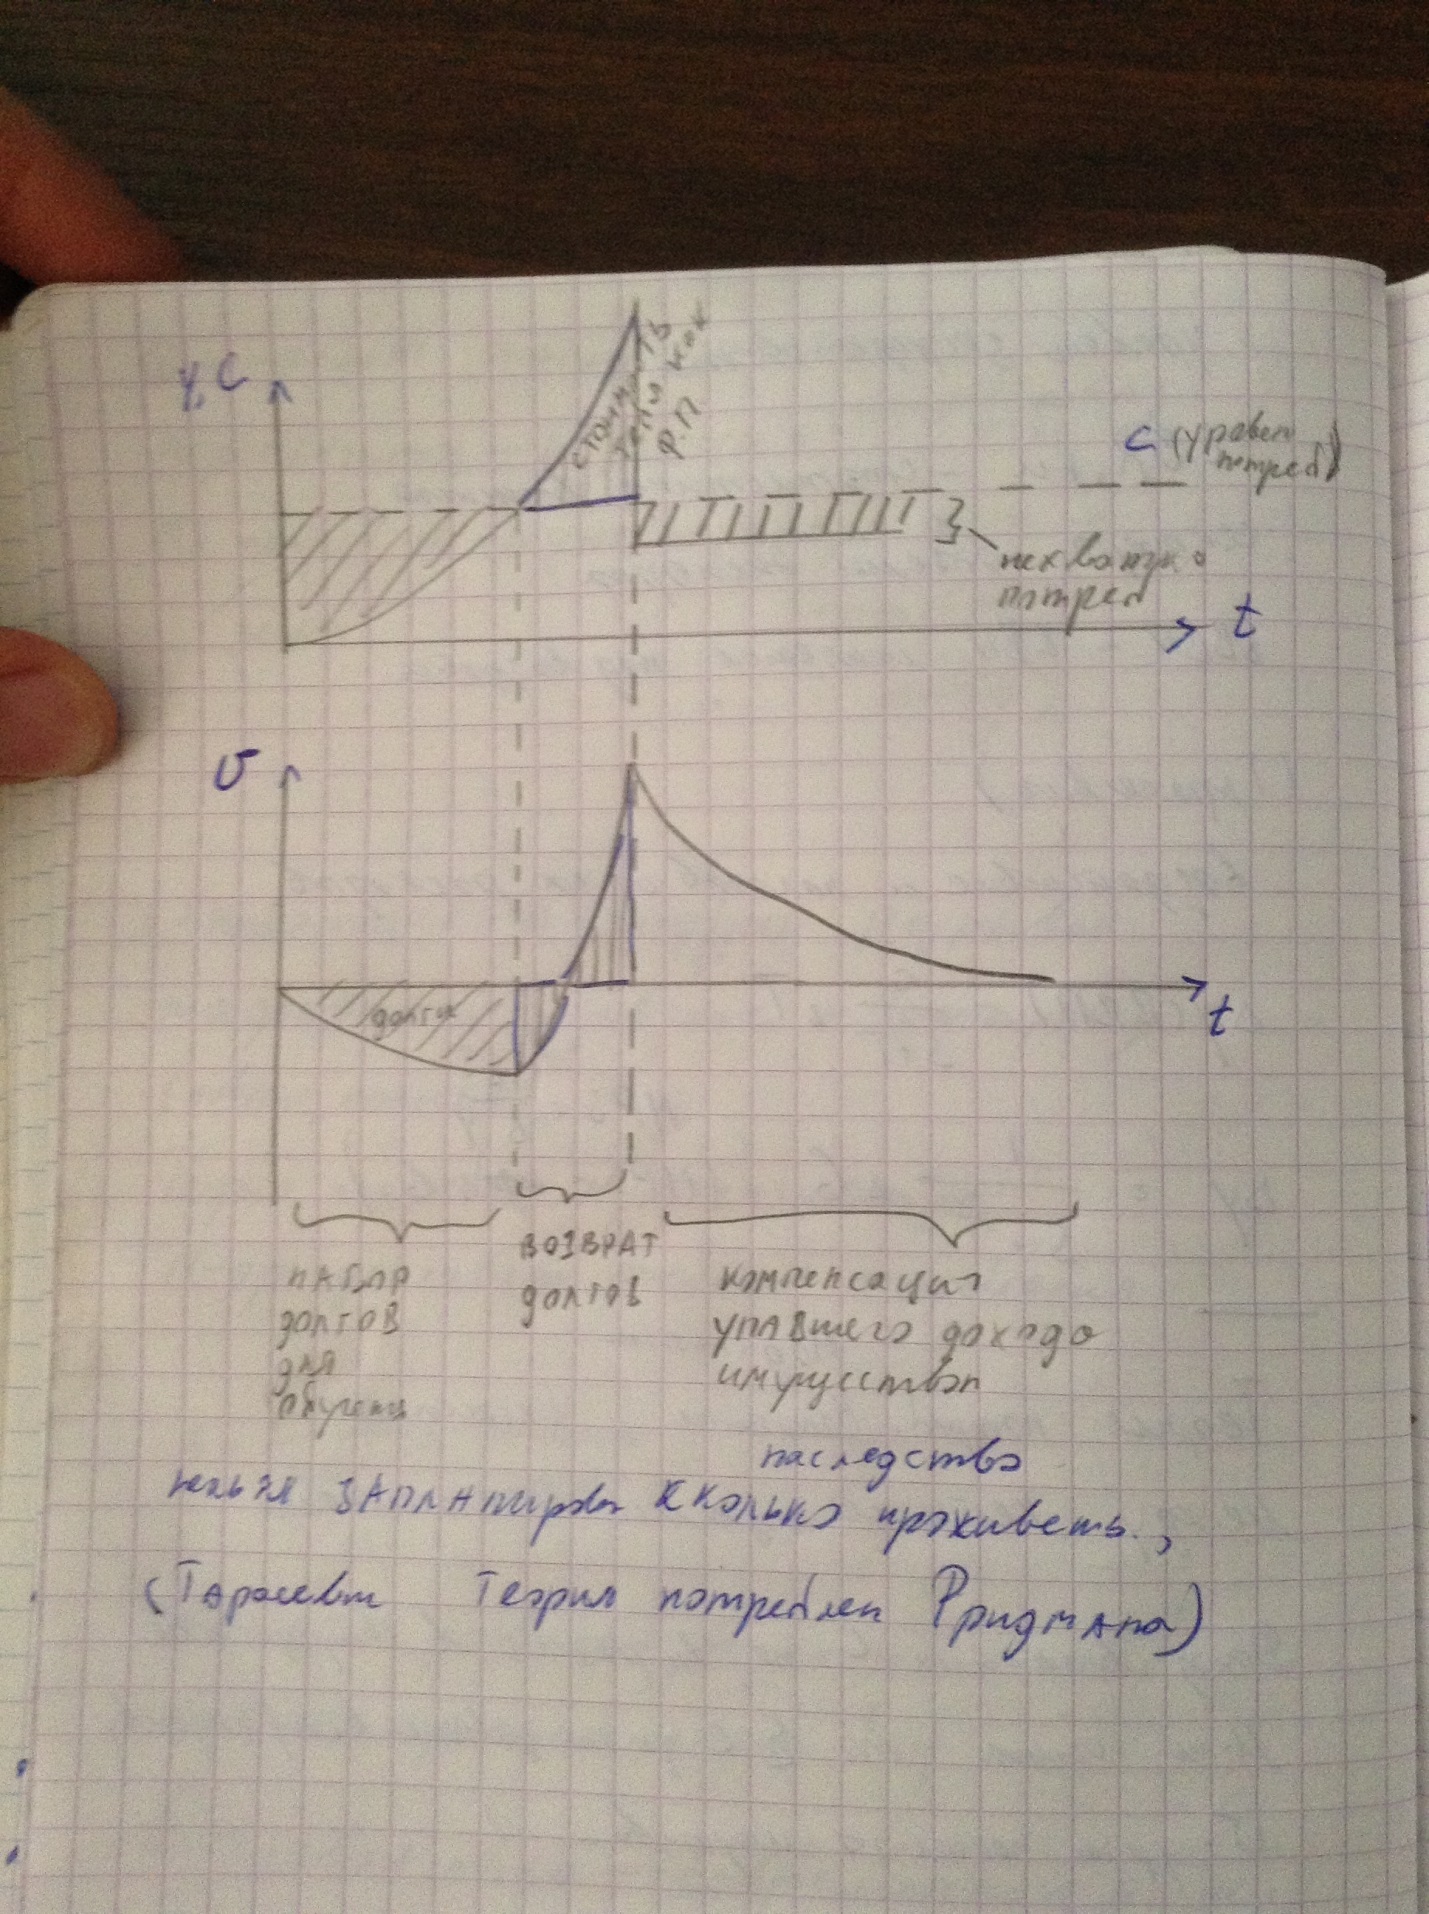 y, C
стоимость
тела как
Ф.П
C (уровен
потреб)
нехватка
потреб
t
υ
долги
t
набор
долгов
для
обучени
возврат
долгов
компенсаций
упавшего дохода
имуусством
наследство
нельзя запланирова сколько проживеть.,
(Тарасевич Теория потреблен Фридмана)